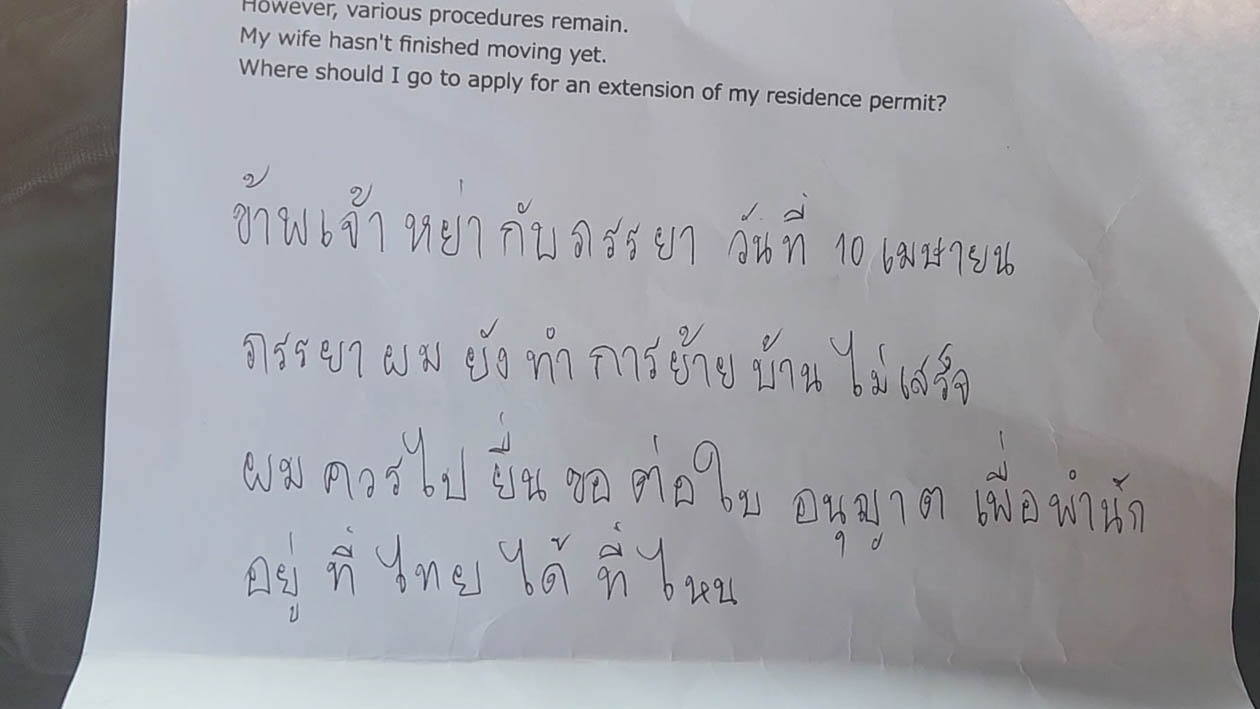 However, various procedures remain.
My wife hasn't finished moving yet.
Where should I go to apply for an extension of my residence permit?
ข้าพเจ้า หย่า กับภรรยา วันที่ 10 เมษายน
ภรรยา ผม ยัง ทำ การย้าย บ้าน ไม่เสร็จ
ผม ควรไป ยื่น ขอ ต่อใบ อนุญาต เพื่อพำนัก
อยู่ ที่ ไทย ได้ ที่ไหน